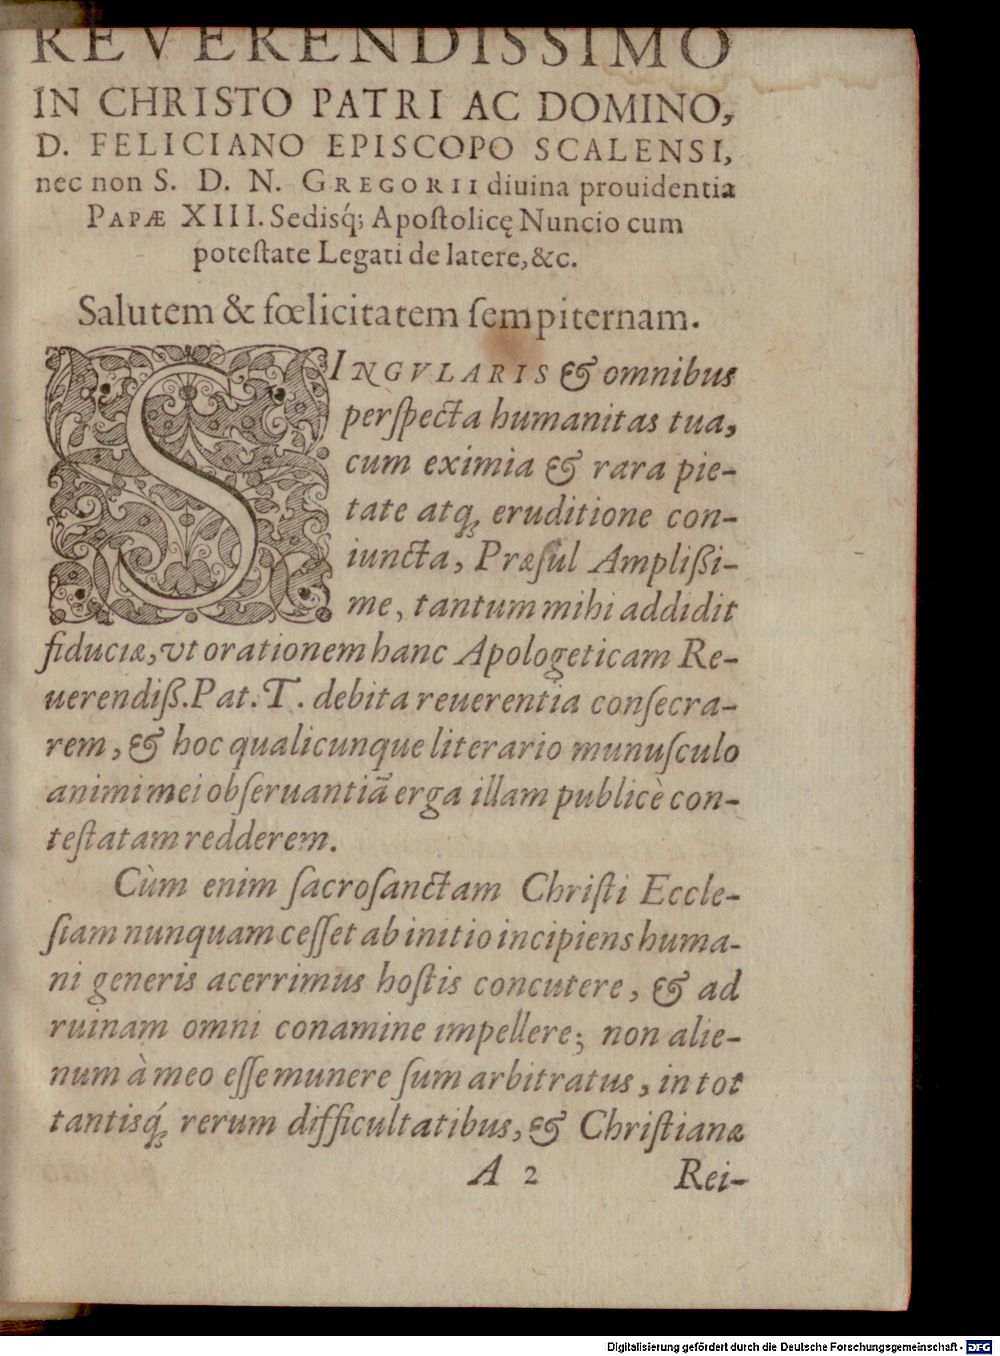 REVERENDISSIMO
IN CHRISTO PATRI AC DOMINO,
D. FELICIANO EPISCOPO SCALENSI,
nec non S. D. N. GREGORII diuina prouidentia
PAPÆ XIII. Sedisq́; Apoſtolicę Nuncio cum
poteſtate Legati de latere, &c.
Salutem & fœlicitatem ſempiternam.
SINGVLARIS & omnibus
perſpecta humanitas tua,
cum eximia & rara pie-
tate atq; eruditione con-
iuncta, Præſul Ampliſsi-
me, tantum mihi addidit
fiduciæ, vt orationem hanc Apologeticam Re-
uerendiß. Pat. T. debita reuerentia conſecra-
rem, & hoc qualicunque literario munuſculo
animi mei obſeruantiā erga illam publicè con-
teſtatam redderem.
Cùm enim ſacroſanctam Chriſti Eccle-
ſiam nunquam ceſſet ab initio incipiens huma-
ni generis acerrimus hoſtis concutere, & ad
ruinam omni conamine impellere; non alie-
num à meo eſſe munere ſum arbitratus, in tot
tantisq́; rerum difficultatibus, & Chriſtianæ
A 2 Rei-
Digitalisierung gefördert durch die Deutsche Forschungsgemeinschaft - DFG